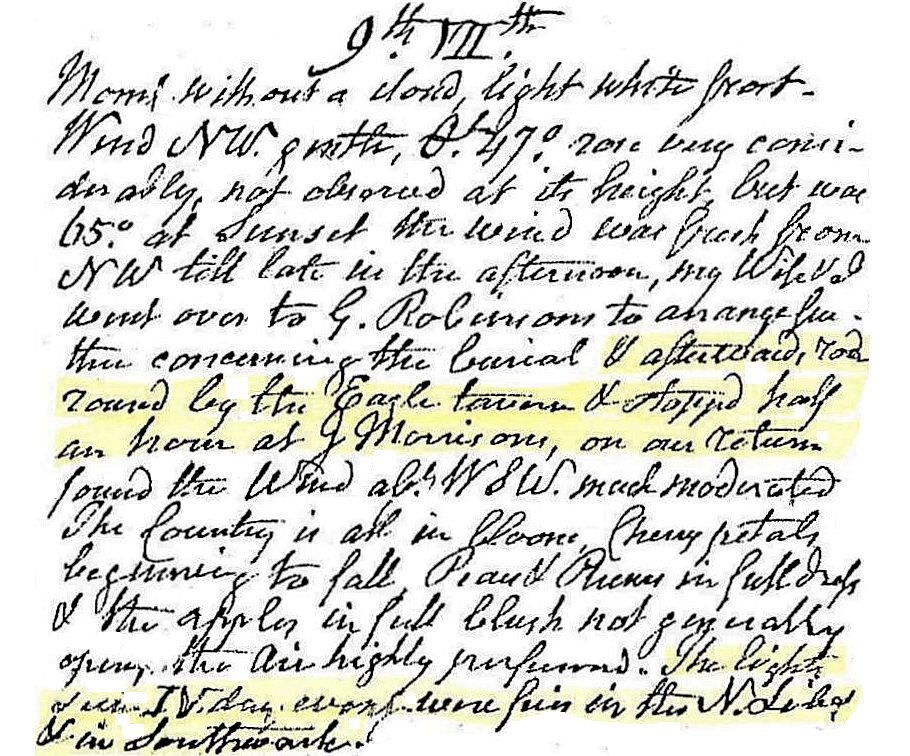 9th. VIIth.
Morng. without a cloud, light white frost.
Wind NW. gentle, 47°. rose very consi-
derably, not observed at its height, but was
65.° at Sunset the wind was fresh from
NW till late in the afternoon, my Wife & I
went over to G. Robinsons to arrange fur-
ther concerning the burial & afterwards rode
round by the Eagle tavern & stopp'd half
an hour at J Morrisons, on our return
found the Wind abt. WSW. much moderated
The Country is all in bloom, Cherry petals
beginning to fall Pears & Plums in full dress
& the apples in full blush not generally
open, the Air highly perfumed. The lights
seen IV.day eveng. were fires in the N. Libs
& in Southwark.